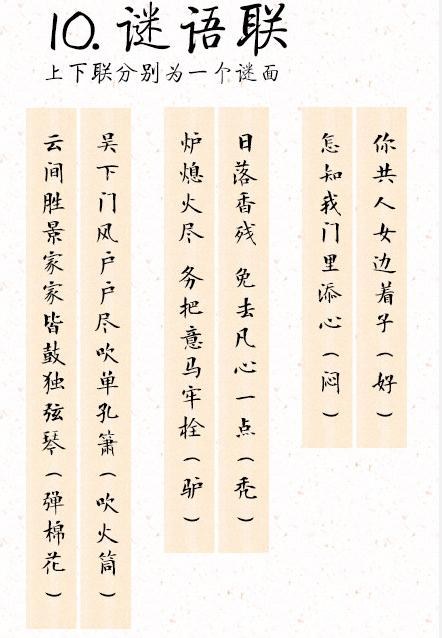 10. 谜语联
上下联分别为一个谜面
你共人女边着子（好）
怎知我门里添心（闷）
日落香残 免去凡心一点（秃）
炉熄火尽 务把意马牢栓（驴）
吴下门风户户尽吹单孔箫（吹火筒）
云间胜景家家皆鼓独弦琴（弹棉花）